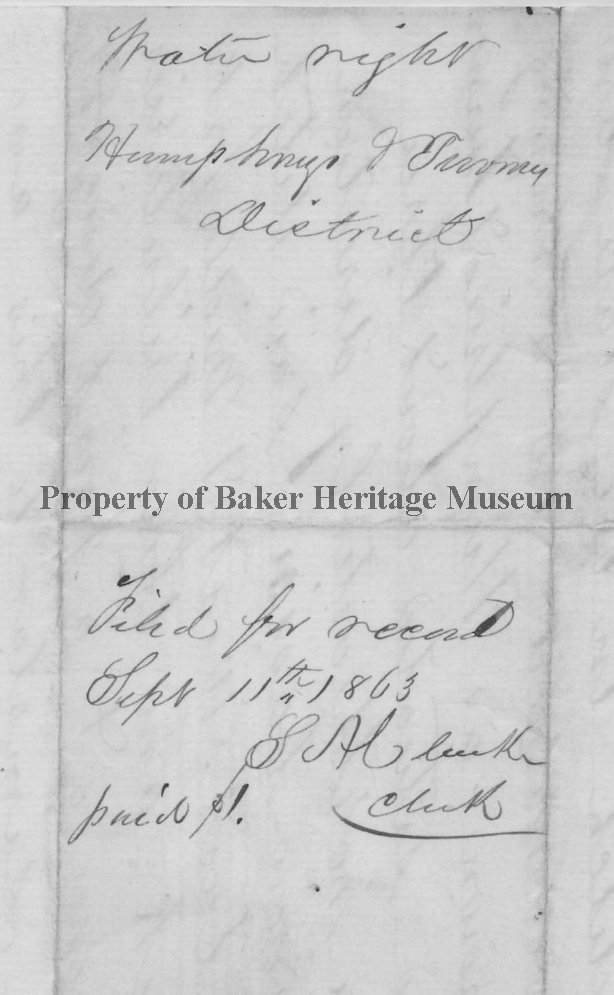 Water right
Humphreys & Twomey
District
Property of Baker Heritage Museum
Filed for record
Sept 11th 1863
S A Clarke
paid $1. Clerk